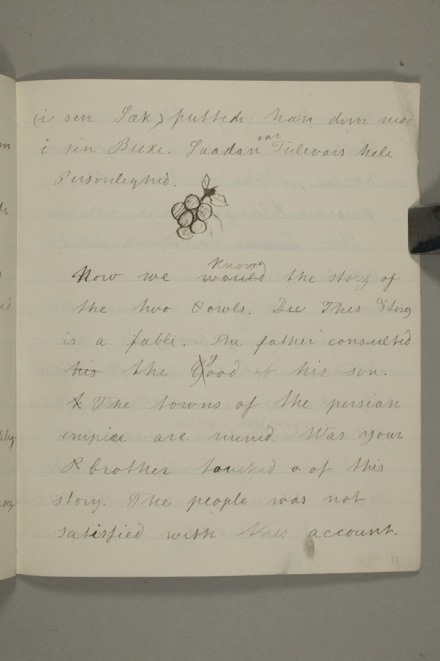 (i sin Sæk) puttede han dem ned
i sin Buxe. Saadan var Tulevars hele
Personlighed.
Now we would know the story of
the two Owls. Dee This Story
is a fable. The father consulted
his the good of his son.
The towns of the persian
empire are ruined Was your
brother of this
story. The people was not
satisfied with this account.